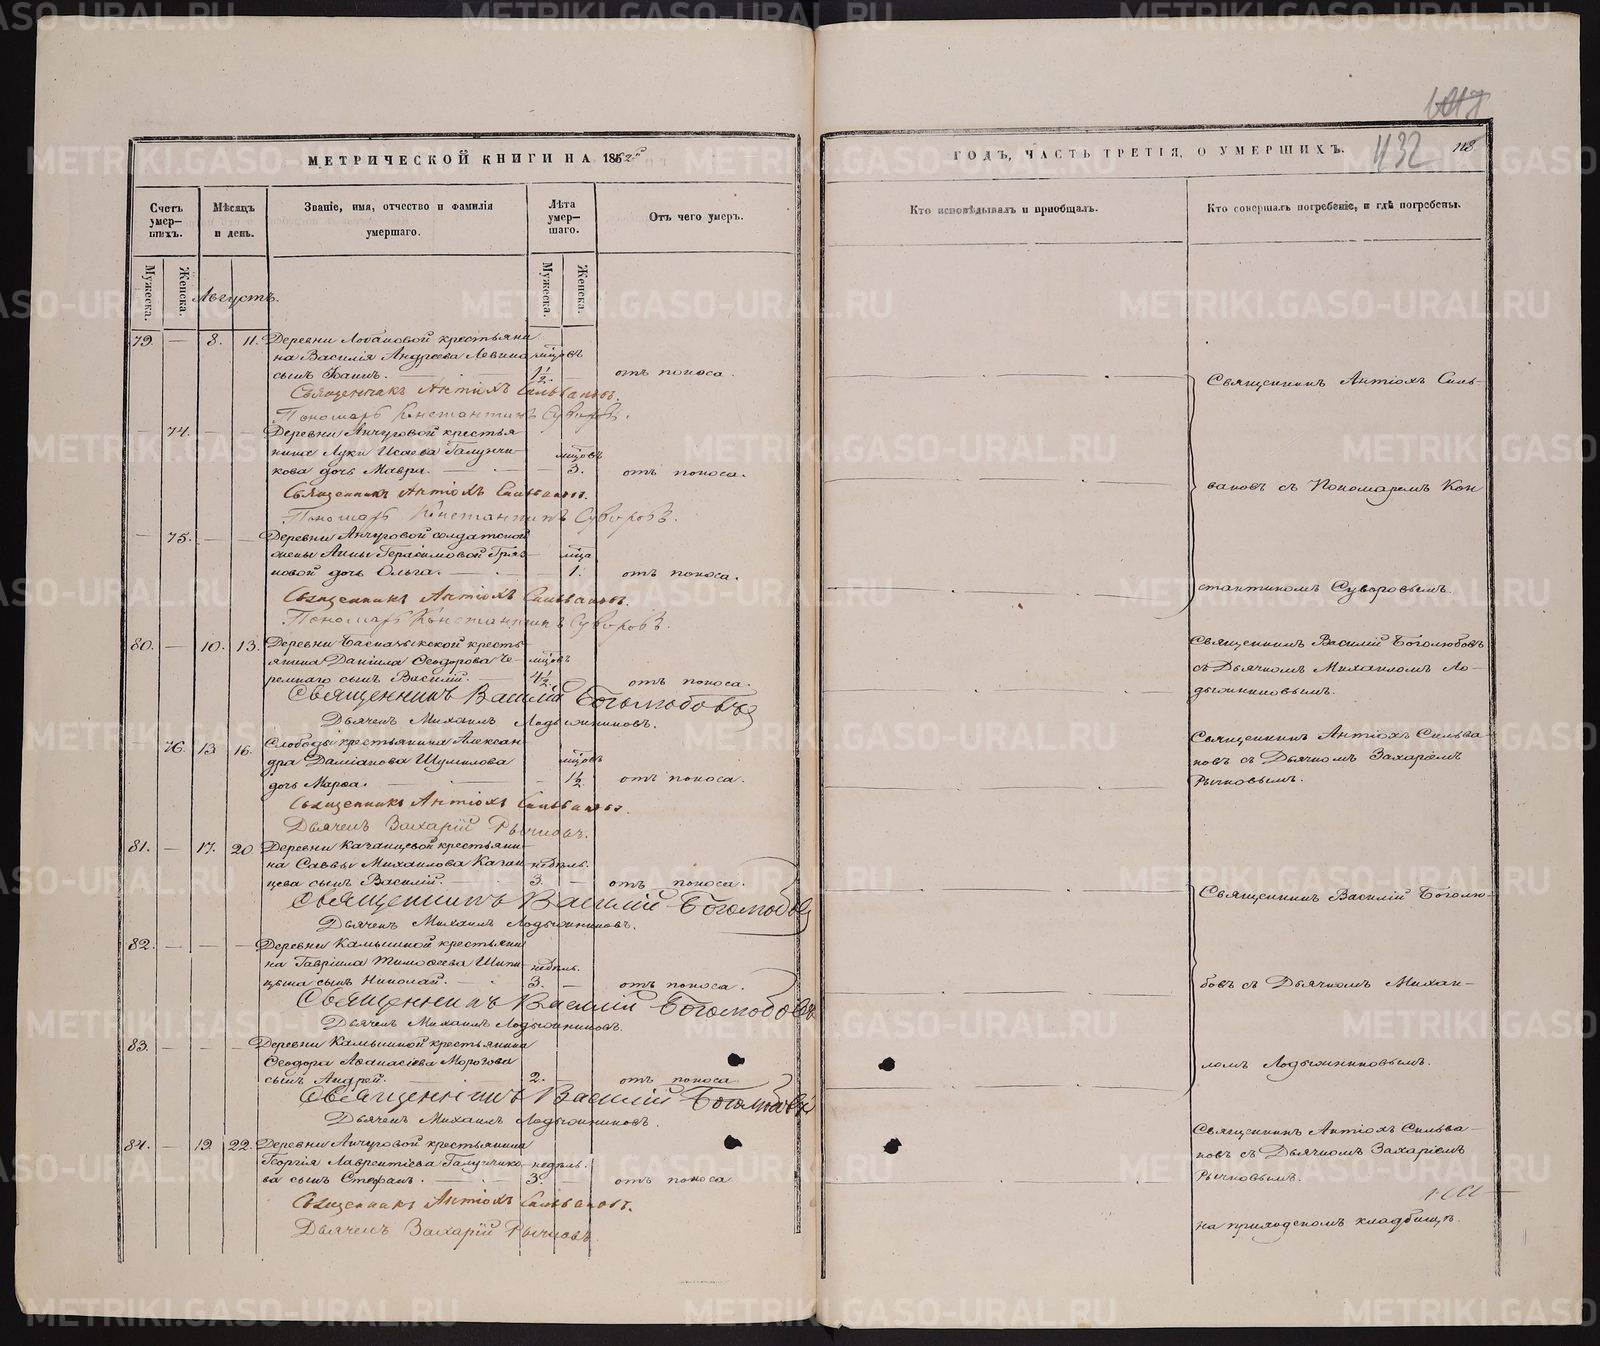 МЕТРИЧЕСКОЙ КНИГИ НА 1862й
Счетъ умер-шихъ.
Мѣсяцъ и день.
Званіе, имя, отчество и фамилія умершаго.
Лѣта умер-шаго.
Отъ чего умеръ.
Мужеска.
Женска.
Мужеска.
Женска.
Августъ.
79. — 8. 11. Деревни Лобановой крестьяни
на Василія Андреева Левина мцовъ
сынъ Іоаннъ. 1½ отъ поноса.
Священникъ Антіохъ Сильвановъ.
Пономарь Константинъ Суворовъ.
— 74. — — Деревни Анчуговой крестья
нина Луки Исаева Галунчи- мцовъ
кова дочь Мавра. — 3. отъ поноса.
Священникъ Антіохъ Сильвановъ.
Пономарь Константинъ Суворовъ.
— 75. — — Деревни Анчуговой солдатской
жены Анны Герасимовой Гряз- мца
новой дочь Ольга. — 1. отъ поноса.
Священникъ Антіохъ Сильвановъ.
Пономарь Константинъ Суворовъ.
80. — 10. 13. Деревни кресть
янина Даніила Ѳеодорова Че- мцовъ
ремнаго сынъ Василій. 4½ отъ поноса.
Священникъ Василій Боголюбовъ
Дьячекъ Михаилъ Лодыжниковъ.
— 76. 13 16. Слободы крестьянина Алексан-
дра Даміанова Шумилова мцовъ
дочь Марѳа. — 1½ отъ поноса.
Священникъ Антіохъ Сильвановъ.
Дьячекъ Захарій Рычковъ.
81. — 17. 20 Деревни Казанцевой крестьяни-
на Саввы Михаилова Казан- недѣль.
цева сынъ Василій. 3. — отъ поноса.
Священникъ Василій Боголюбовъ
Дьячекъ Михаилъ Лодыжниковъ.
82. — — — Деревни Камышной крестьяни
на Гавріила Тимоѳеева Шипи- недѣль.
цына сынъ Николай. 3. — отъ поноса.
Священникъ Василій Боголюбовъ
Дьячекъ Михаилъ Лодыжниковъ.
83. — — — Деревни Камышной крестьянина
Ѳеодора Аѳанасіева Морогова
сынъ Андрей. 2. — отъ поноса
Священникъ Василій Боголюбовъ
Дьячекъ Михаилъ Лодыжниковъ.
84. — 19. 22. Деревни Анчуговой крестьянина
Георгія Лаврентіева Галунчико- недѣль.
ва сынъ Стефанъ. 3. отъ поноса
Священникъ Антіохъ Сильвановъ.
Дьячекъ Захарій Рычковъ.
432
113
ГОДЪ, ЧАСТЬ ТРЕТІЯ, О УМЕРШИХЪ.
Кто исповѣдывалъ и пріобщалъ.
Кто совершалъ погребеніе, и гдѣ погребены.
Священникъ Антіохъ Силь-
вановъ съ Пономаремъ Кон
стантиномъ Суворовымъ.
Священникъ Василій Боголюбовъ
съ Дьячкомъ Михаиломъ Ло-
дыжниковымъ.
Священникъ Антіохъ Сильва-
новъ съ Дьячкомъ Захаріемъ
Рычковымъ.
Священникъ Василій Боголю-
бовъ съ Дьячкомъ Михаи-
ломъ Лодыжниковымъ.
Священникъ Антіохъ Сильва-
новъ съ Дьячкомъ Захаріемъ
Рычковымъ.
на приходскомъ кладбищѣ.
METRIKI.GASO-URAL.RU